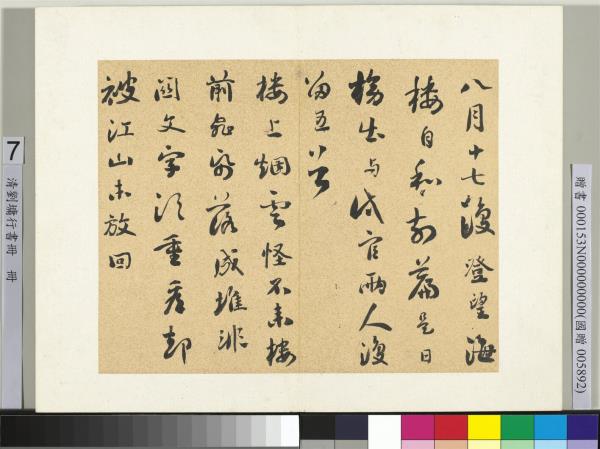 八月十七復澄望海
樓自和前篇是日
榜出与試官兩人復
留五首
樓上烟雲怪不來樓
前飛紙落成堆非
關文字須重看却
被江山未放回
7
清劉墉行書冊 冊
贈書 000153N000000000(國贈 005892)